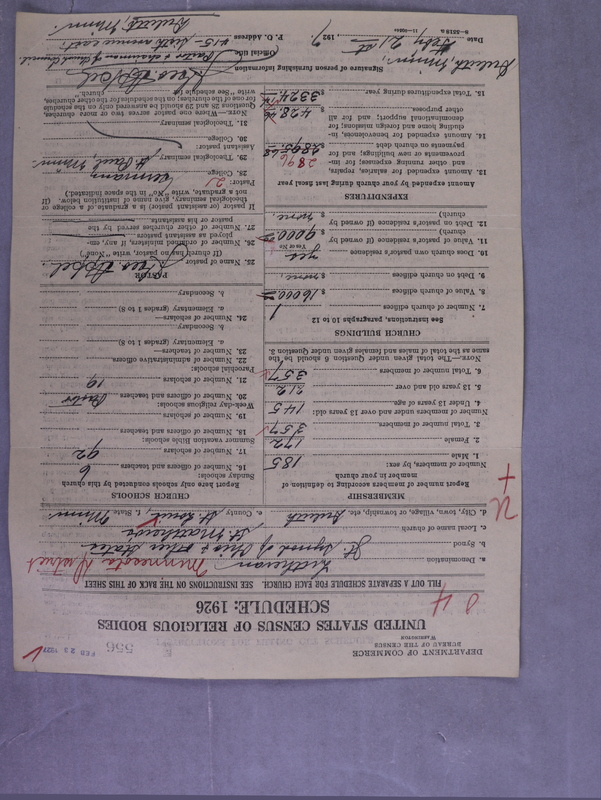 DEPARTMENT OF COMMERCE
BUREAU OF THE CENSUS
WASHINGTON
556
FEB 23 1927
UNITED STATES CENSUS OF RELIGIOUS BODIES
SCHEDULE: 1926
FILL OUT A SEPARATE SCHEDULE FOR EACH CHURCH. SEE INSTRUCTIONS ON THE BACK OF THIS SHEET
a. Denomination Lutheran Minnesota District
b. Synod Ev. Synod of Ohio & other States
c. Local name of church St. Matthew's
d. City, town, village, or township, etc. Duluth e. County St. Louis f. State Minn.
MEMBERSHIP
Report here number of members according to definition of member in your church
Number of members, by sex:
1. Male 185
2. Female 172
3. Total number of members 357
Number of members under and over 13 years old:
4. Under 13 years of age 145
5. 13 years old and over 212
6. Total number of members 357
NOTE.—The total given under Question 6 should be the same as the total of males and females given under Question 3.
CHURCH BUILDINGS
See instructions, paragraphs 10 to 12
7. Number of church edifices 1
8. Value of church edifices $ 16000.00
9. Debt on church edifices $ none
10. Does church own pastor's residence yes
Yes or No
11. Value of pastor's residence (if owned by church) $ 9000.00
12. Debt on pastor's residence (if owned by church) $ none
EXPENDITURES
Amount expended by your church during last fiscal year
13. Amount expended for salaries, repairs, and other running expenses; for improvements or new buildings; and for payments on church debt $ 2895.68
2896
14. Amount expended for benevolences, including home and foreign missions; for denominational support; and for all other purposes $ 428.46
15. Total expenditures during year $ 3324.14
CHURCH SCHOOLS
Report here only schools conducted by this church
Sunday schools:
16. Number of officers and teachers 6
17. Number of scholars 92
Summer vacation Bible schools:
18. Number of officers and teachers
19. Number of scholars
Week-day religious schools:
20. Number of officers and teachers Pastor
21. Number of scholars 19
Parochial schools:
22. Number of administrative officers
23. Number of teachers—
a. Elementary (grades 1 to 8)
b. Secondary
24. Number of scholars—
a. Elementary (grades 1 to 8)
b. Secondary
PASTOR
25. Name of pastor
(If church has no pastor, write "None")
26. Number of other ordained ministers, if any, employed as assistant pastors
27. Number of other churches served by the pastor or his assistants
If pastor (or assistant pastor) is a graduate of a college or theological seminary, give name of institution below. (If not a graduate, write "No" in the space indicated.)
Pastor:
28. College
29. Theological seminary St. Paul, Minn.
Assistant pastor:
30. College
31. Theological seminary
NOTE.—Where one pastor serves two or more churches, Questions 28 and 29 should be answered only on the schedule for one of the churches; on the schedules for the other churches, write "See schedule for church."
Signature of person furnishing information
Official title Pastor & chairman of church council
P. O. Address 415- sixth avenue east.
Duluth, Minn.
Duluth, Minn.,
Date Feb'y 21 st, 1927
8—5518 a